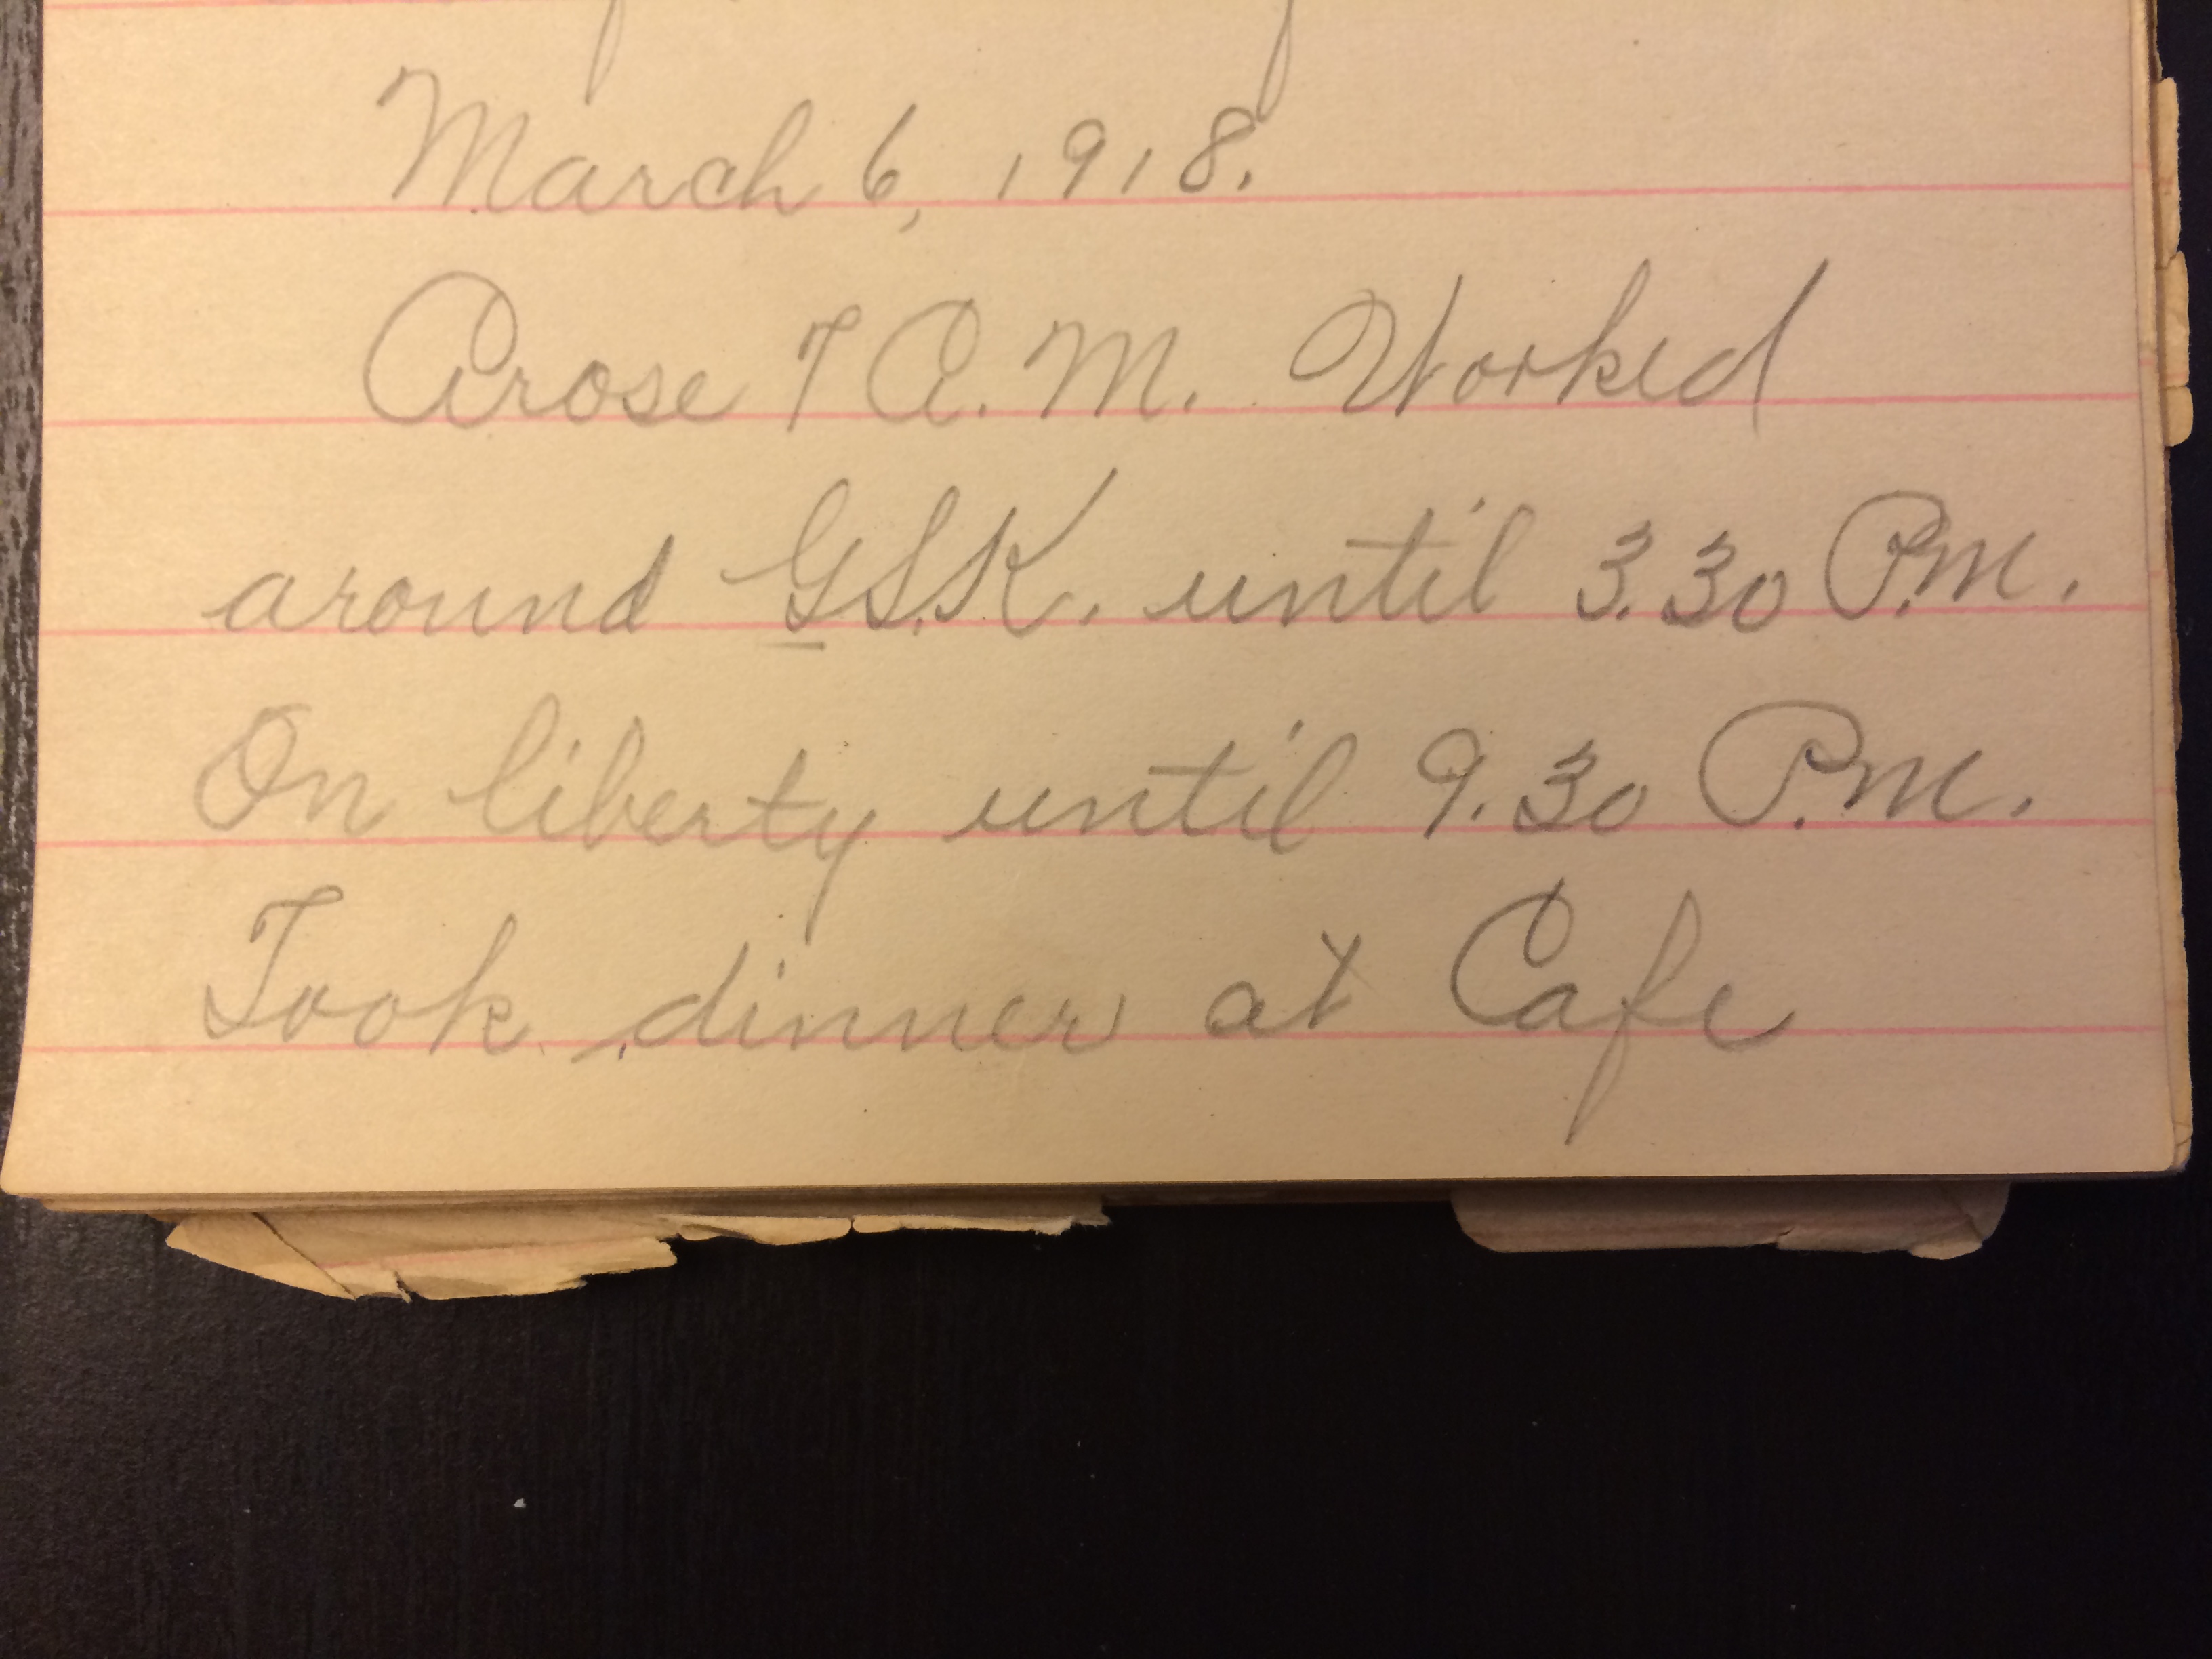 March 6, 1918.
Arose 7 A.M. Worked
around G.S.K. until 3.30 P.M.
On liberty until 9.30 P.M.
Took dinner at Cafe